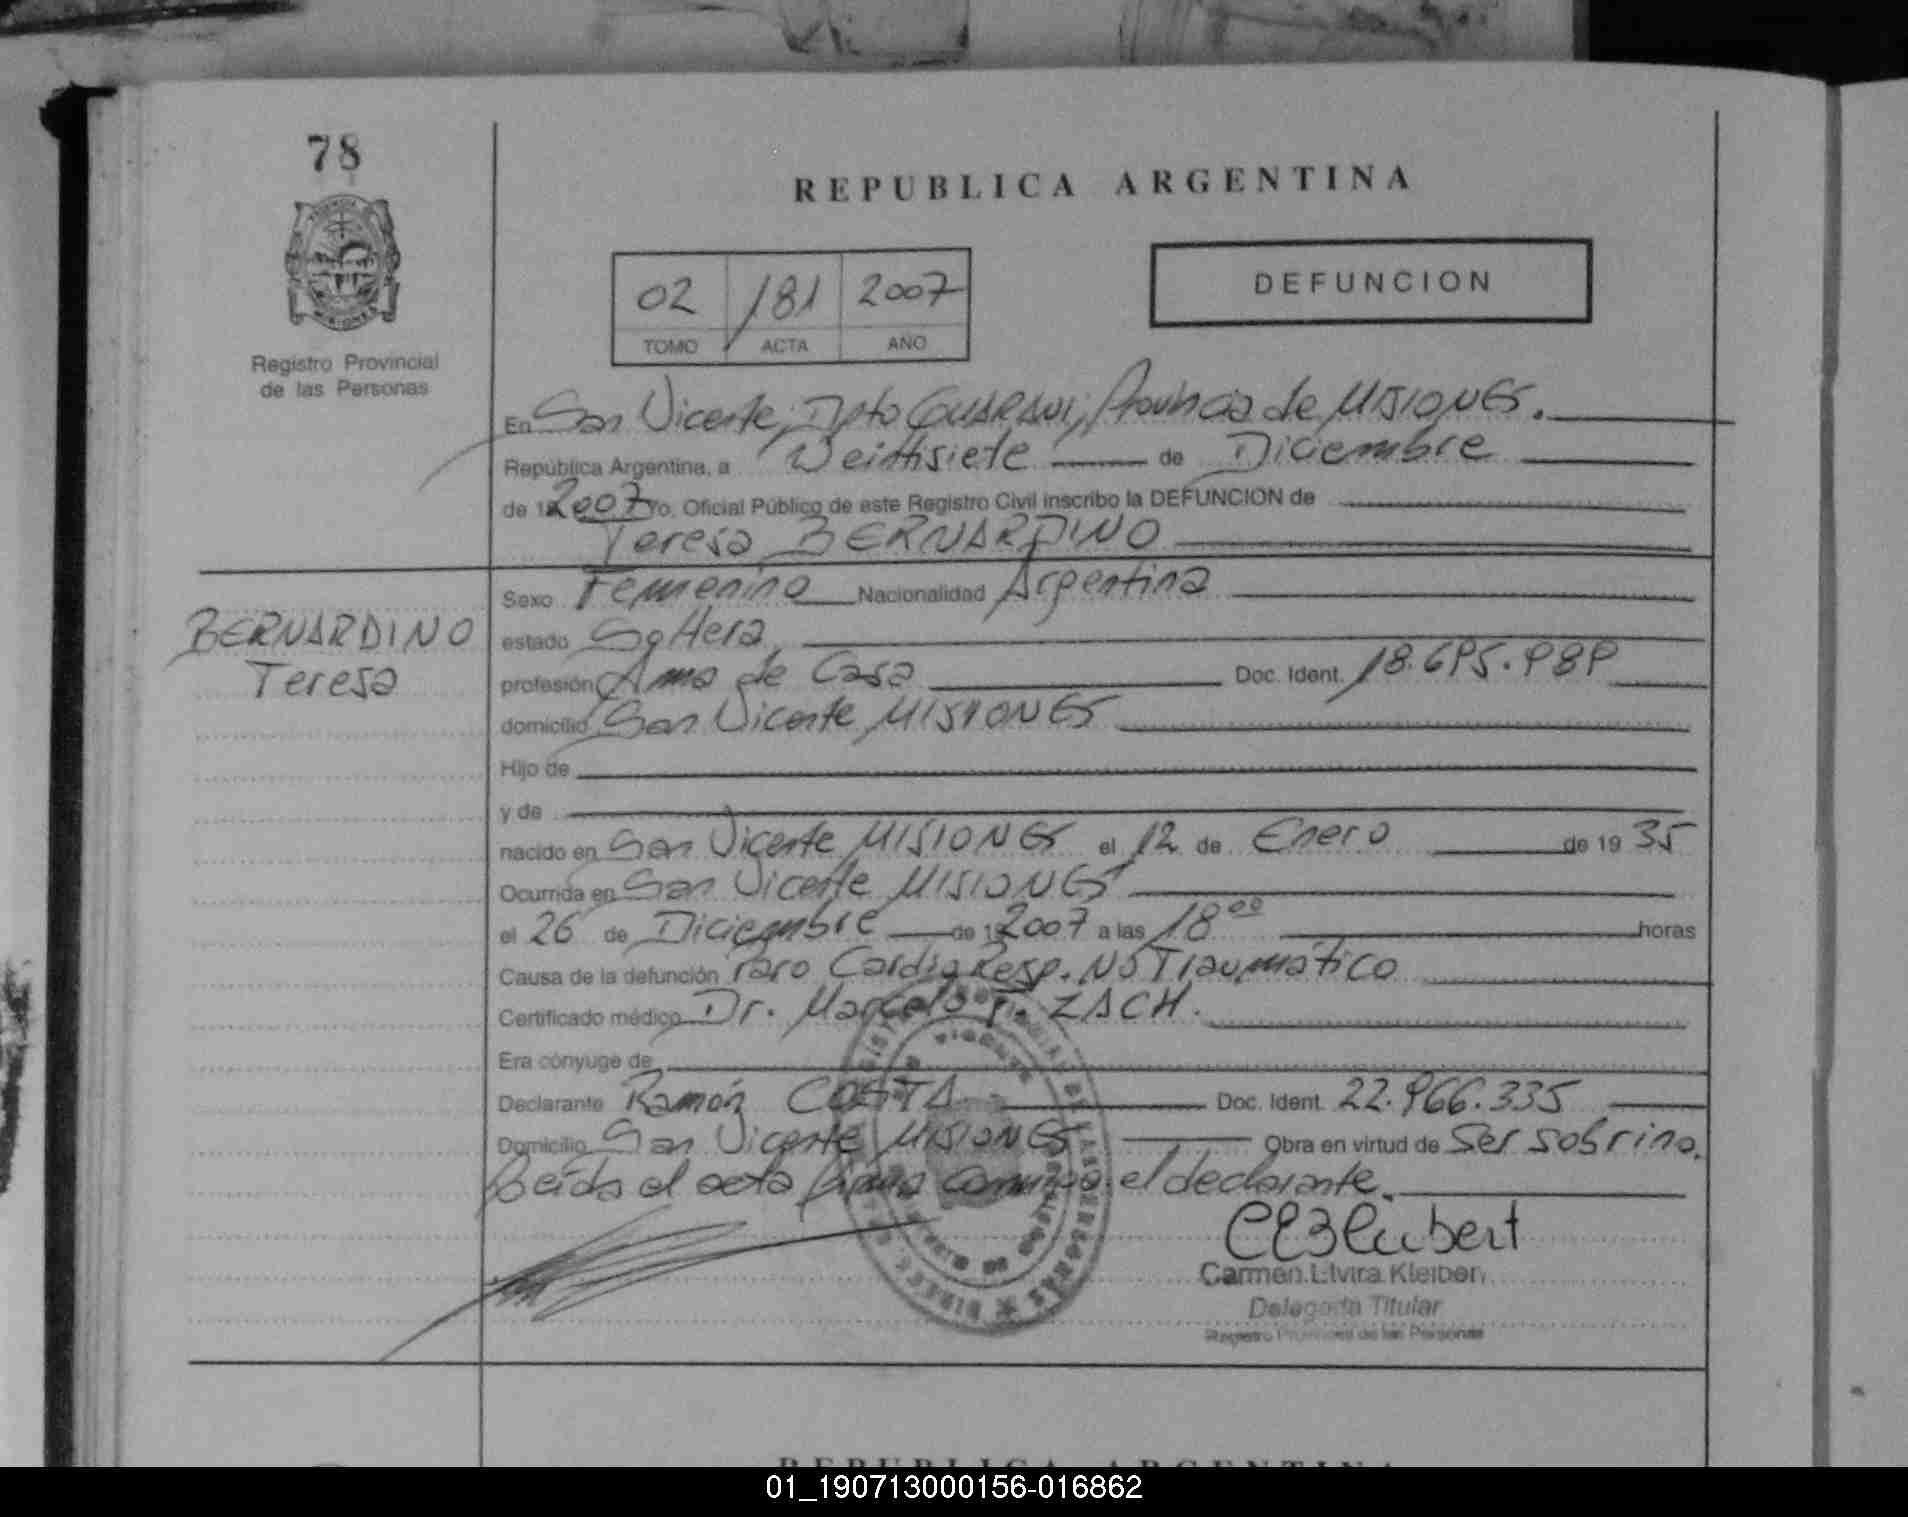 78
REPUBLICA ARGENTINA
02 181 2007
TOMO ACTA AÑO
DEFUNCION
Registro Provincial
de las Personas
En San Vicente, Dpto GUARANI, Provincia de MISIONES.
República Argentina, a Veintisiete de Diciembre
de 2007 Yo, Oficial Público de este Registro Civil inscribo la DEFUNCION de
Teresa BERNARDINO
BERNARDINO
Teresa
Sexo Femenino Nacionalidad Argentina
estado Soltera
profesión Ama de Casa Doc. Ident. 18.695.989
domicilio San Vicente MISIONES
Hijo de
y de
nacido en San Vicente MISIONES el 12 de Enero de 19 35
Ocurrida en San Vicente MISIONES
el 26 de Diciembre de 2007 a las 18 00 horas
Causa de la defunción Paro CardioResp. NO Traumático
Certificado médico Dr. Marcelo ZACH.
Era cónyuge de
Declarante Ramón COSTA Doc. Ident. 22.966.335
Domicilio San Vicente MISIONES Obra en virtud de Ser sobrino.
Leída el acta firma conmigo el declarante.
Carmen Elvira Kleibert
Delegada Titular
Registro Provincial de las Personas
REPUBLICA ARGENTINA
01_190713000156-016862